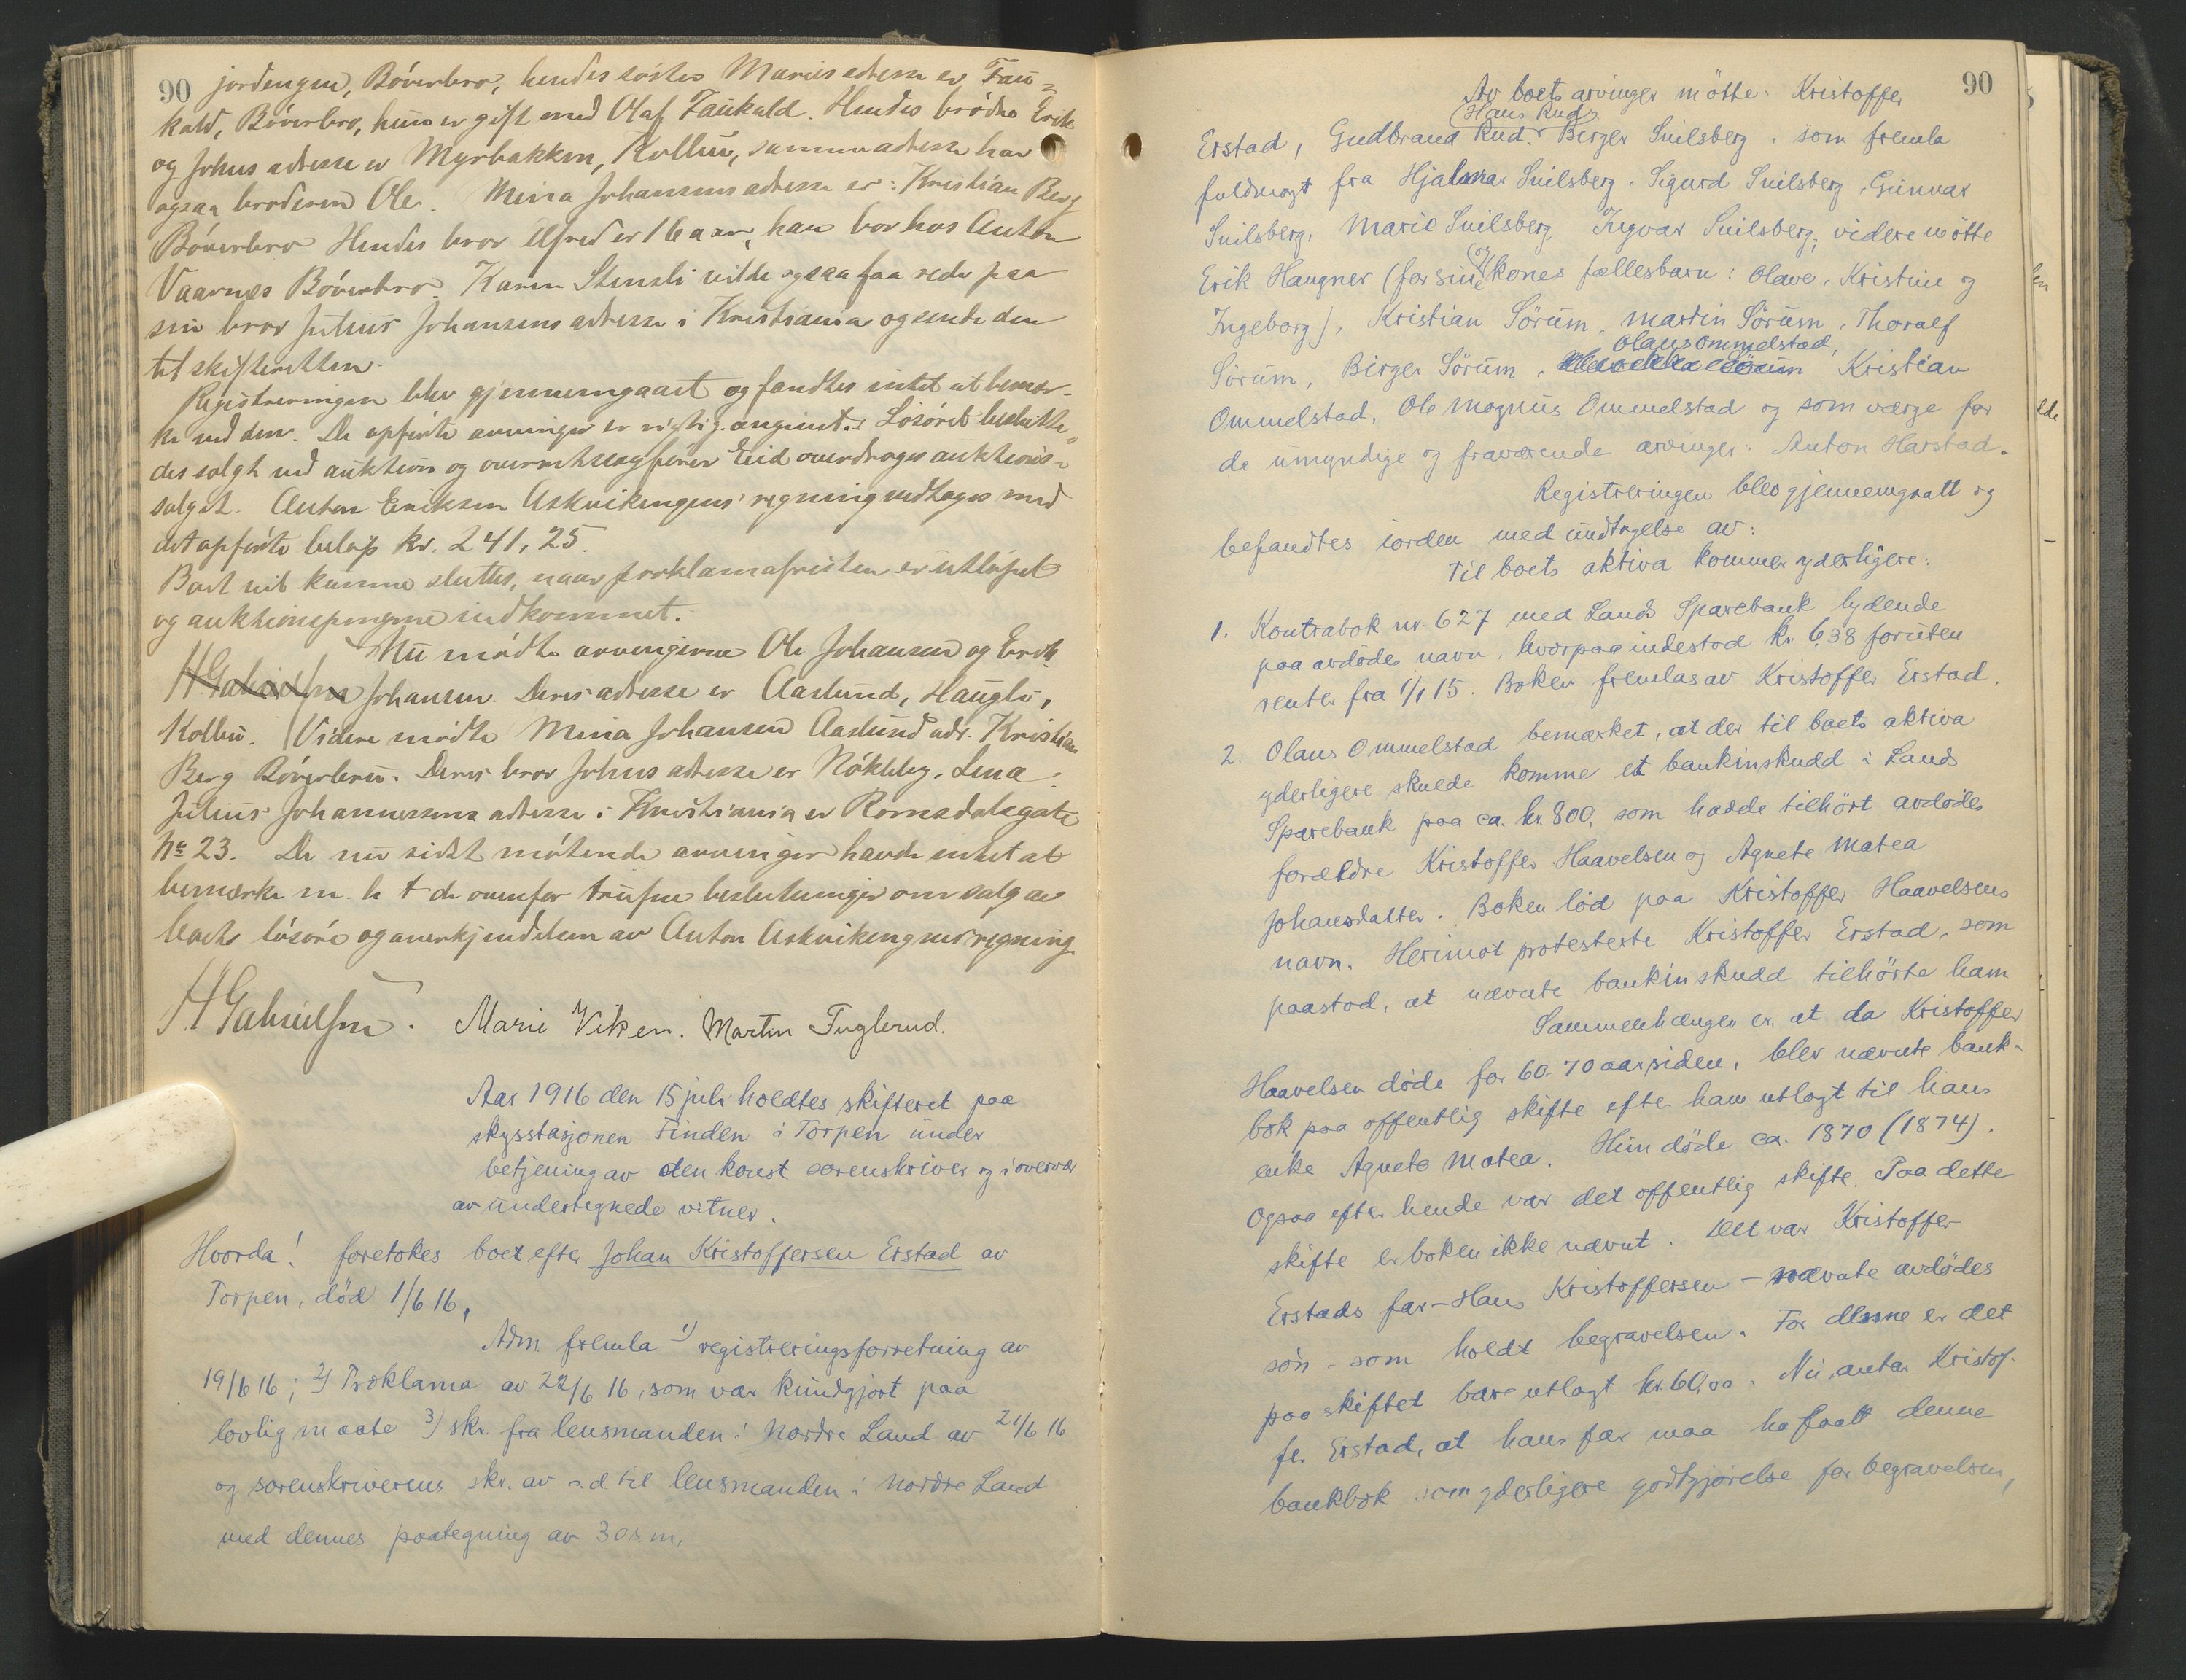 90 jordengen, Böverbro, hendes söster Maries adresse er Fau-
kald, Böverbro, hun er gift med Olaf Faukald. Hendes brödre Erik
og Johns adresse er Myrbakken, Kolbu, samme adresse har
ogsaa broderen Ole. Mina Johansens adresse er: Kristian Berg
Böverbro Hendes bror Alfred er 16 aar, han bor hos Anton
Vaarnes Böverbro. Karen Stensli vilde ogsaa faa rede paa
sin bror Julius Johansens adresse i Kristiania og sende den
til skifteretten.
Registreringen blev gjennemgaaet og fandtes intet at bemær-
ke ved den. De opførte arvinger er rigtig angivet. Lösöret beslutte-
des solgt ved auktion og overretssagförer Eid overdroges auktions-
salget. Anton Eriksen Askvikengens regning vedtages med
det opførte belöp kr. 241,25.
Boet vil kunne sluttes, naar proklamafristen er utlöpet
og auktionspengene indkommet.
Nu mödte arvingerne Ole Johansen og Erik
HGabrielsen Johansen. Deres adresse er Aaslund, Hauglu,
Kolbu. Videre mödte Mina Johansen Aaslund adr. Kristian
Berg Böverbru. Deres bror Johns adresse er Nökleby, Lena.
Julius Johannesens adresse i Kristiania er Romsdalsgate
No 23. De nu sidst mötende arvinger havde intet at
bemærke m. h t de ovenfor trufne beslutninger om salg av
boets lösöre og anerkjendelsen av Anton Askvikengens regning
HGabrielsen. Marie Viken. Martin Fuglerud.
Aar 1916 den 15 juli holdtes skifteret paa
skysstasjonen Finden i Torpen under
betjening av den konst sorenskriver og i overvær
av undertegnede vitner.
Hvorda! foretokes boet efter Johan Kristoffersen Erstad av
Torpen, död 1/6 16.
Adm. fremla 1) registreringsforretning av
19/6 16; 2) Proklama av 22/6 16, som var kundgjort paa
lovlig maate 3) skr. fra lensmanden i Nordre Land av 21/6 16
og sorenskriverens skr. av s.d til lensmanden i Nordre Land
med dennes paategning av 30 s.m.
90
Av boets arvinger mötte: Kristoffer
(Hans Rud)
Erstad, Gudbrand Rud. Berger Snilsberg, som fremla
fuldmagt fra Hjalmar Snilsberg. Sigurd Snilsberg, Gunvar
Snilsberg, Marie Snilsberg Ingvar Snilsberg; videre mötte
Erik Haugner (for sin og kones fællesbarn: Olave, Kristine og
Ingeborg), Kristian Sörum, Martin Sörum, Thoralf
Olaus Ommelstad,
Sörum, Birger Sörum, Kristian
Ommelstad, Ole Magnus Ommelstad og som værge for
de umyndige og fraværende arvinger: Anton Harstad.
Registreringen blev gjennemgaatt og
befandtes iorden med undtagelse av:
Til boets aktiva kommer yderligere:
1. Kontrabok nr. 627 med Lands Sparebank lydende
paa avdödes navn, hvorpaa indestod kr. 6,38 foruten
renter fra 1/1 15. Boken fremlas av Kristoffer Erstad.
2. Olaus Ommelstad bemærket, at der til boets aktiva
yderligere skulde komme et bankinskudd i Lands
Sparebank paa ca. kr. 800, som hadde tilhört avdödes
forældre Kristoffer Haavelsen og Agnete Matea
Johansdatter. Boken löd paa Kristoffer Haavelsens
navn. Herimot protesterte Kristoffer Erstad, som
paastod, at nævnte bankinskudd tilhörte ham
Sammenhængen er, at da Kristoffer
Haavelsen döde for 60-70 aar siden, blev nævnte bank-
bok paa offentlig skifte efter ham utlagt til hans
enke Agnete Matea. Hun döde ca. 1870 (1874).
Ogsaa efter hende var det offentlig skifte. Paa dette
skifte er boken ikke nævnt. Det var Kristoffer
Erstads far - Hans Kristoffersen - nævnte avdödes
sön - som holdt begravelsen. For denne er det
paa skiftet bare utlagt kr. 60,00. Nu antar Kristof-
fer Erstad, at hans far maa ha faatt denne
bankbok som yderligere godtgjörelse for begravelsen,